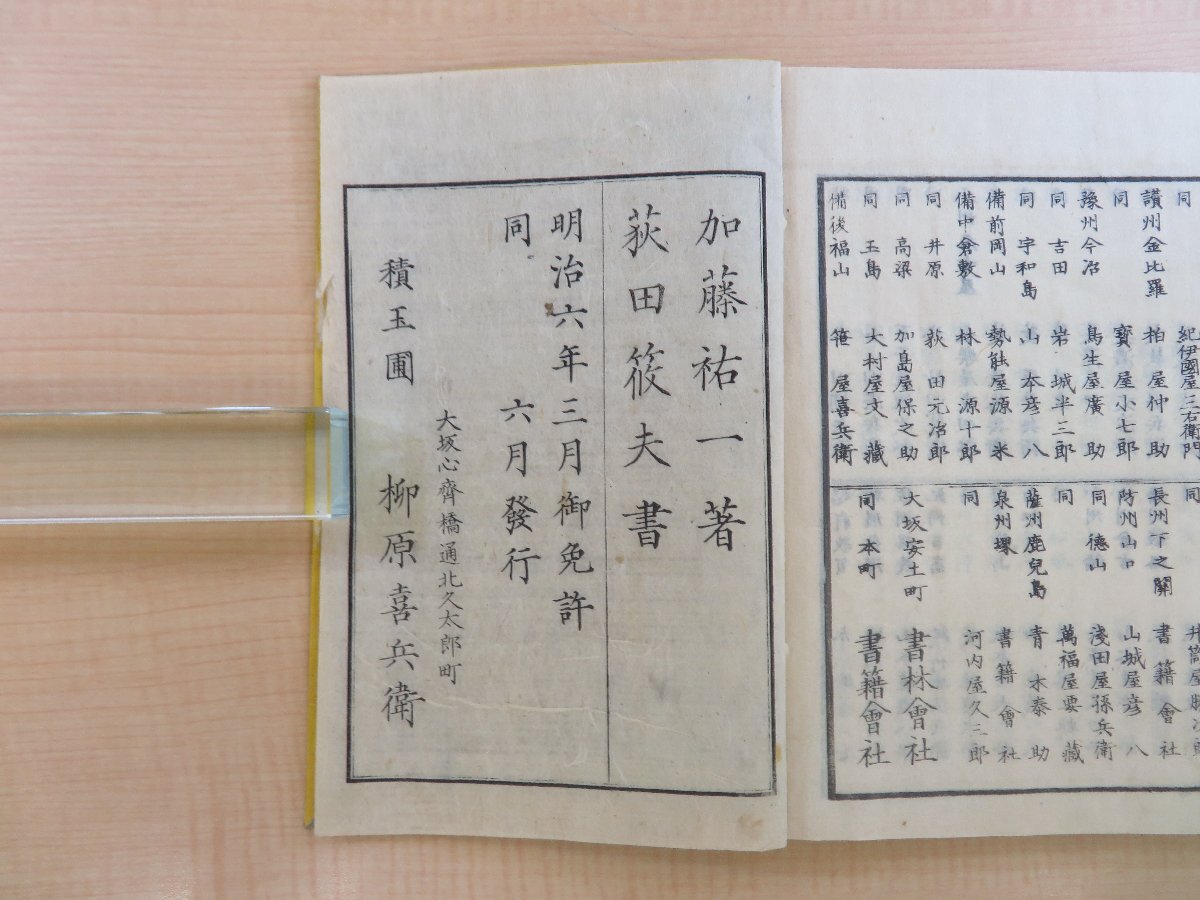 同
讃州金比羅
同
豫州今治
同 吉田
同 宇和島
備前岡山
備中倉敷
同 井原
同 高梁
同 玉島
備後福山
紀伊國屋三右衛門
柏屋仲助
寶屋小七郎
鳥生屋廣助
岩城半三郎
山本彦八
勢能屋源米
林源十郎
荻田元治郎
加島屋保之助
大村屋文藏
笹屋喜兵衛
同
長州下之關
防州山口
同 徳山
同
薩州鹿兒島
泉州堺
同
大坂安土町
同 本町
書籍會社
山城屋彦八
淺田屋孫兵衛
萬福屋要藏
青木泰助
書籍會社
河内屋久三郎
書林會社
書籍會社
加藤祐一著
荻田筱夫書
明治六年三月御免許
同 六月發行
大坂心齊橋通北久太郎町
積玉圃 柳原喜兵衛